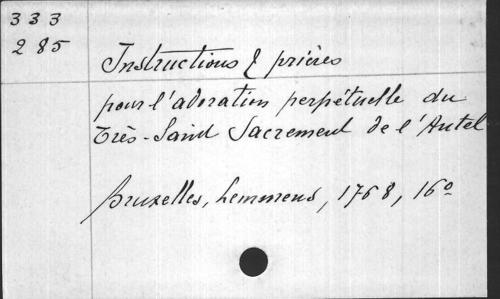 333
285
Instructions & prières
pour l'adoration perpétuelle du
Très-Saint Sacrement de l'Autel
Bruxelles, Lemmens, 1768, 16º